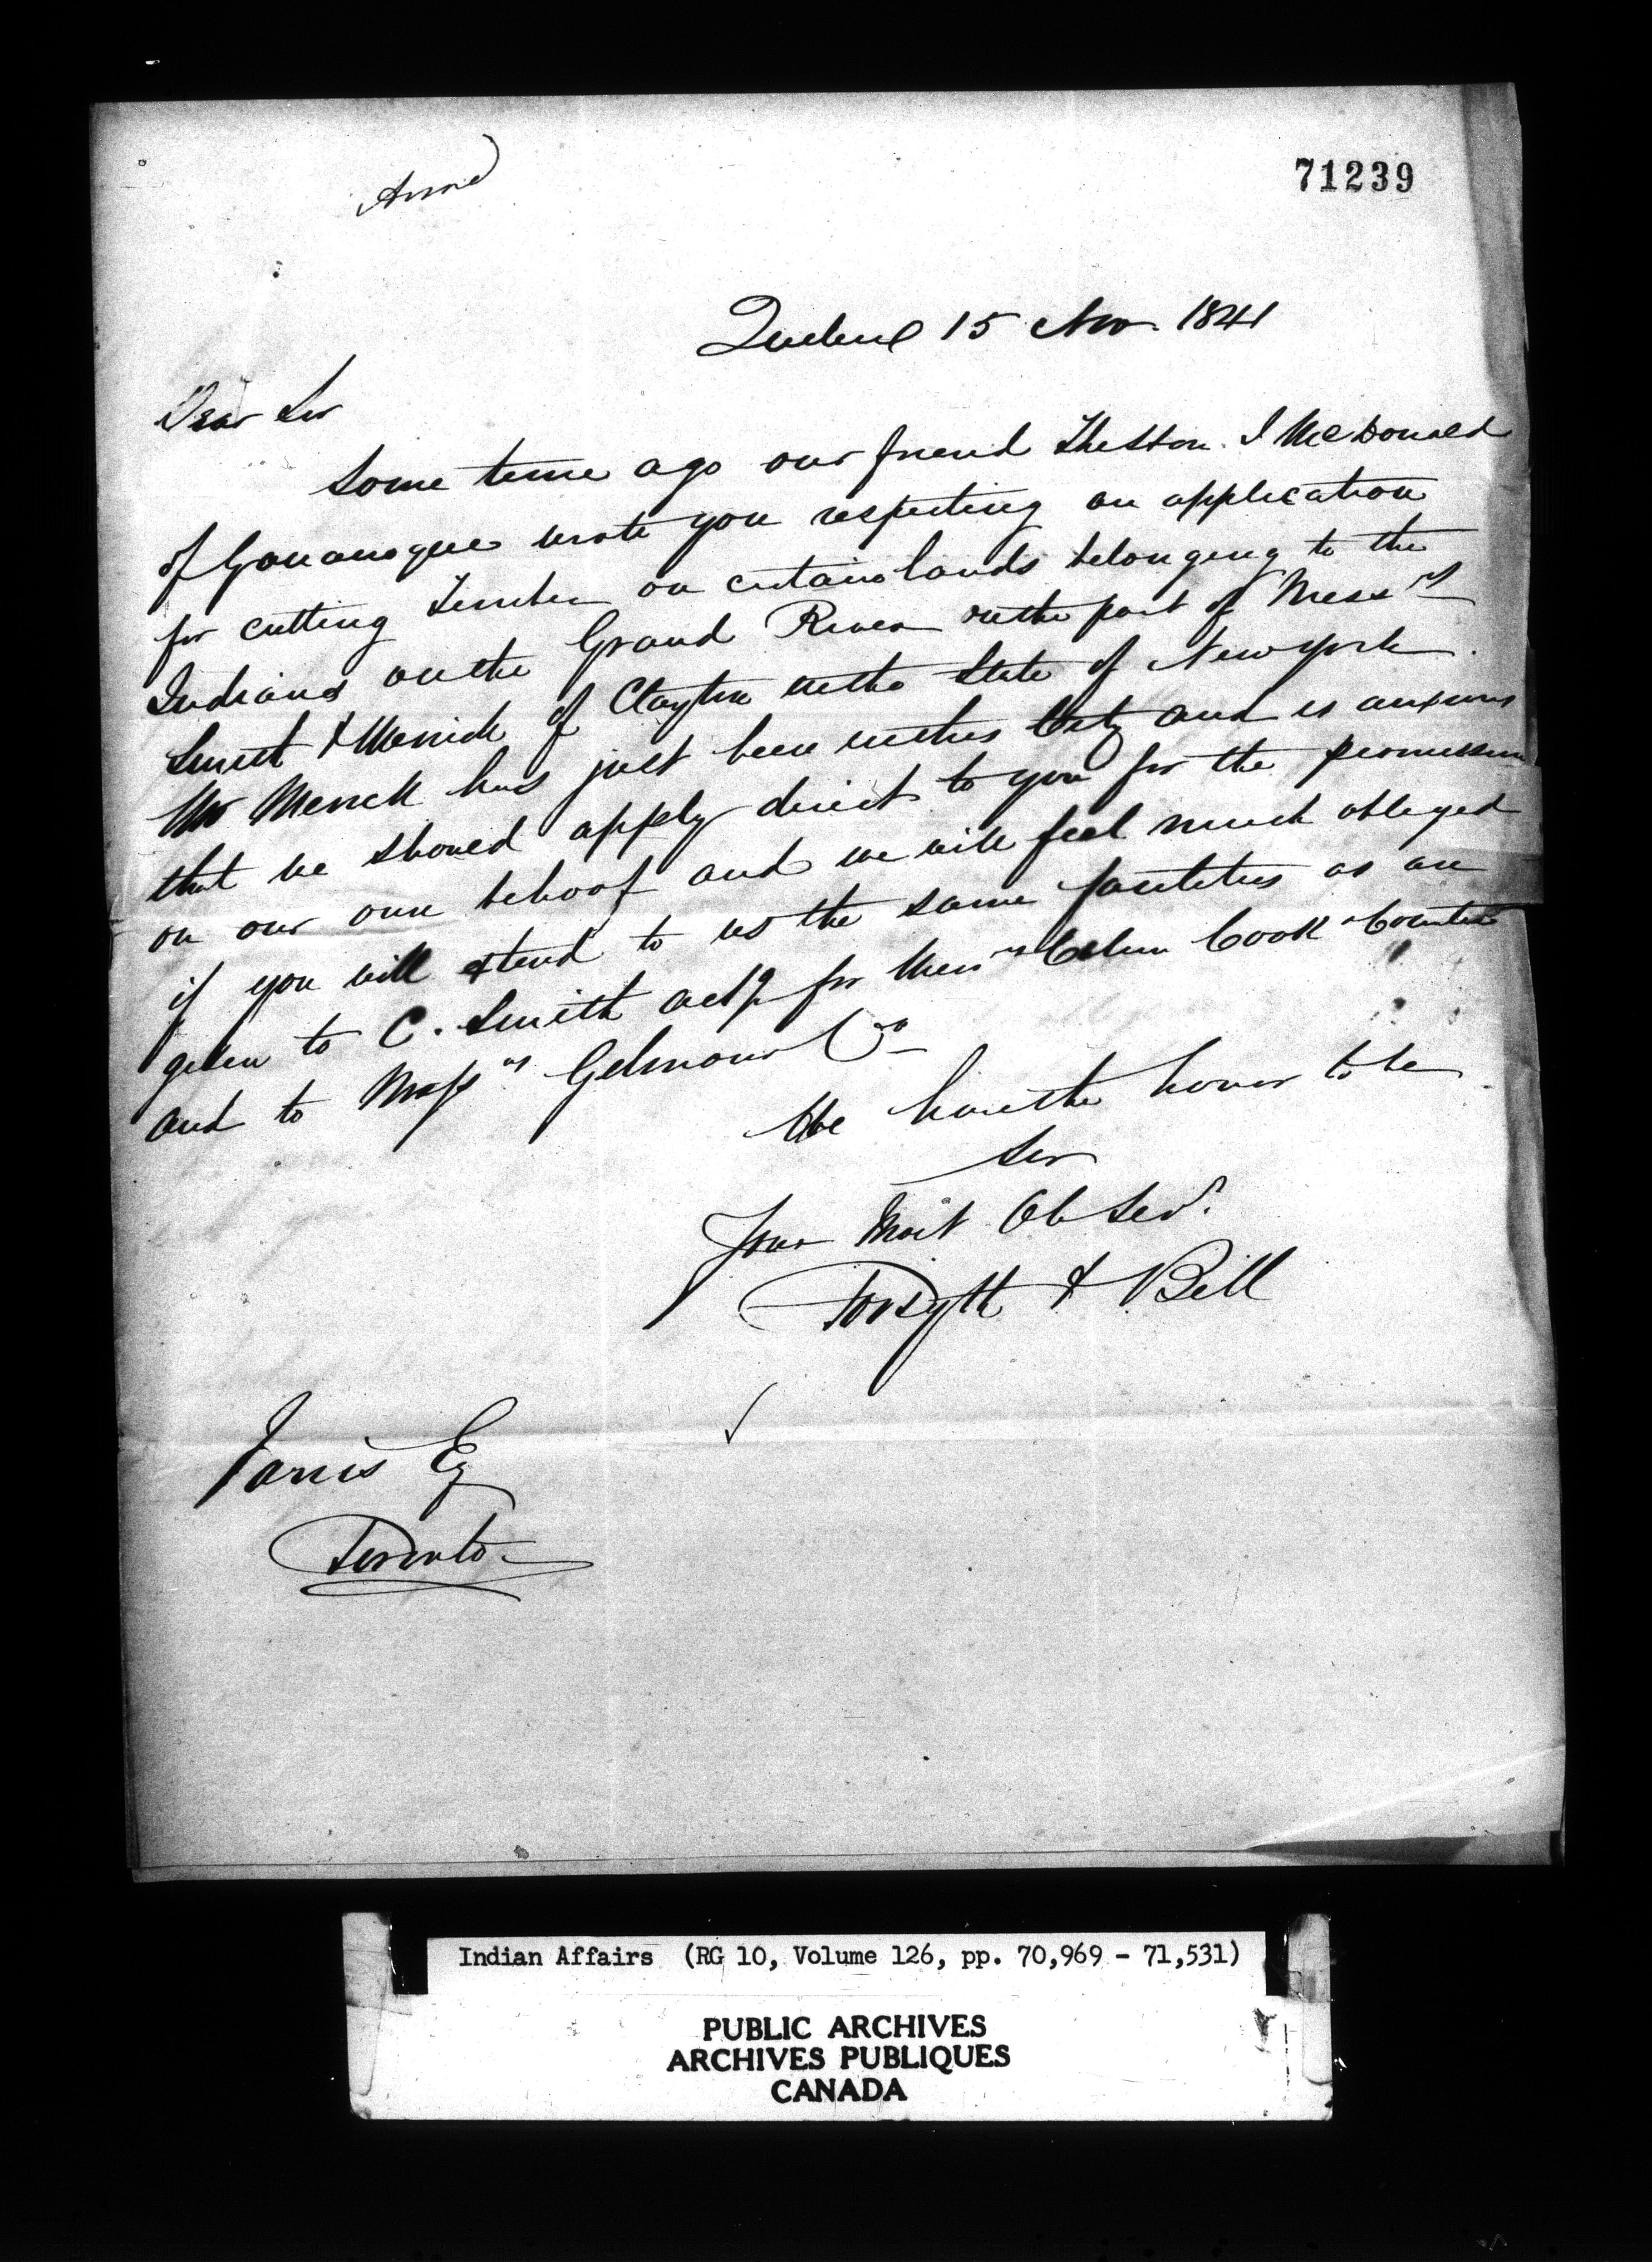 71239
Quebec 15 Nov. 1841
Dear Sir
Some time ago our friend The Hon. J McDonald
of Gananoque wrote you respecting an application
for cutting Timber on certain lands belonging to the
Indians on the Grand River on the part of Messrs
Smith & Merrick of Clayton in the State of New York.
Mr Merrick has just been in this City and is anxious
that we should apply direct to you for the permission
on our own behoof and we will feel much obliged
if you will extend to us the same facilities as are
given to C. Smith actg for Messrs Calvin Cook
and to Messrs Gilmour Co
We have the honor to be
Sir
Your Most Ob Servt
Forsyth & Bell
Jarvis Esq
Toronto
Indian Affairs (RG 10, Volume 126, pp. 70,969 - 71,531)
PUBLIC ARCHIVES
ARCHIVES PUBLIQUES
CANADA